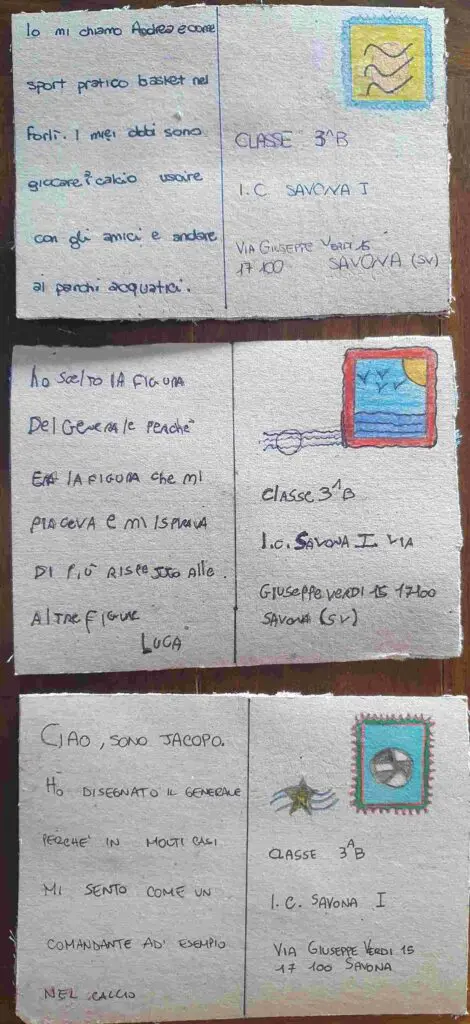 Io mi chiamo Andrea e come
sport pratico basket nel
Forlì. I miei obbi sono
giocare a calcio uscire
con gli amici e andare
ai parchi acquatici.
CLASSE 3^B
I.C. SAVONA I
VIA GIUSEPPE VERDI 15
17 100 SAVONA (SV)
Ho SCELTO LA FIGURA
Del GENERALE PERCHÉ
ERA LA FIGURA CHE MI
PIACEVA E MI ISPIRAVA
DI PIÙ RISPETTO Alle
ALTRE FIGURE
LUCA
Classe 3^B
I.C. SAVONA I VIA
GIUSEPPE VERDI 15 17100
SAVONA (SV)
CIAO, SONO JACOPO.
HO DISEGNATO IL GENERALE
PERCHE' IN MOLTI CASI
MI SENTO COME UN
COMANDANTE AD' ESEMPIO
NEL CALCIO
CLASSE 3^B
I.C. SAVONA I
VIA GIUSEPPE VERDI 15
17 100 SAVONA